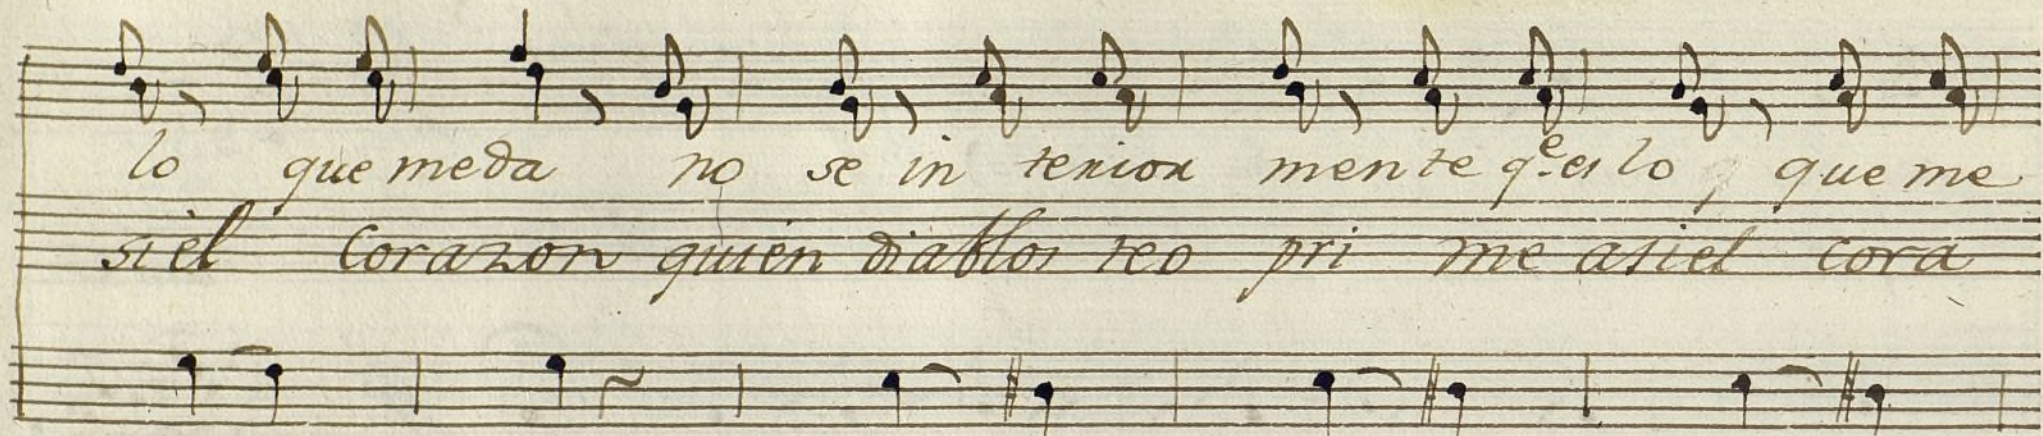 lo que meda no se in terior mente q.e es lo que me
si el Corazon quien diablos teo pri me asiel cora